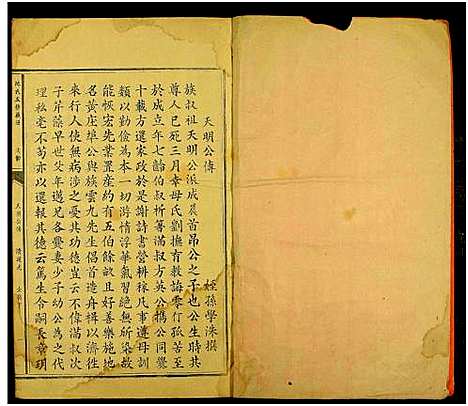 天明公傳
姪孫學洙撰
族叔祖天明公派成晨首昂公之子也公生時其
尊人已死三月幸母氏劉撫育教誨零仃孤苦至
於成立年七齡伯叔折箸滿叔方英公攜公同爨
十載方還家政於是謝詩書營耕稼凡事遵母訓
惟以勤儉為本一切游惰浮華氣習絕無所染故
能恢宏先業置產約有五伯餘畝且見好義里
名黃庄埠公與族雲九先生倡首造舟楫以濟往
來行人使無病涉之憂其功德豈云不偉滿叔次
子芹藻早世父年邁兄各爨妻少子幼公為之代
理私毫不苟亦以還報其德云篤生令嗣長章玥